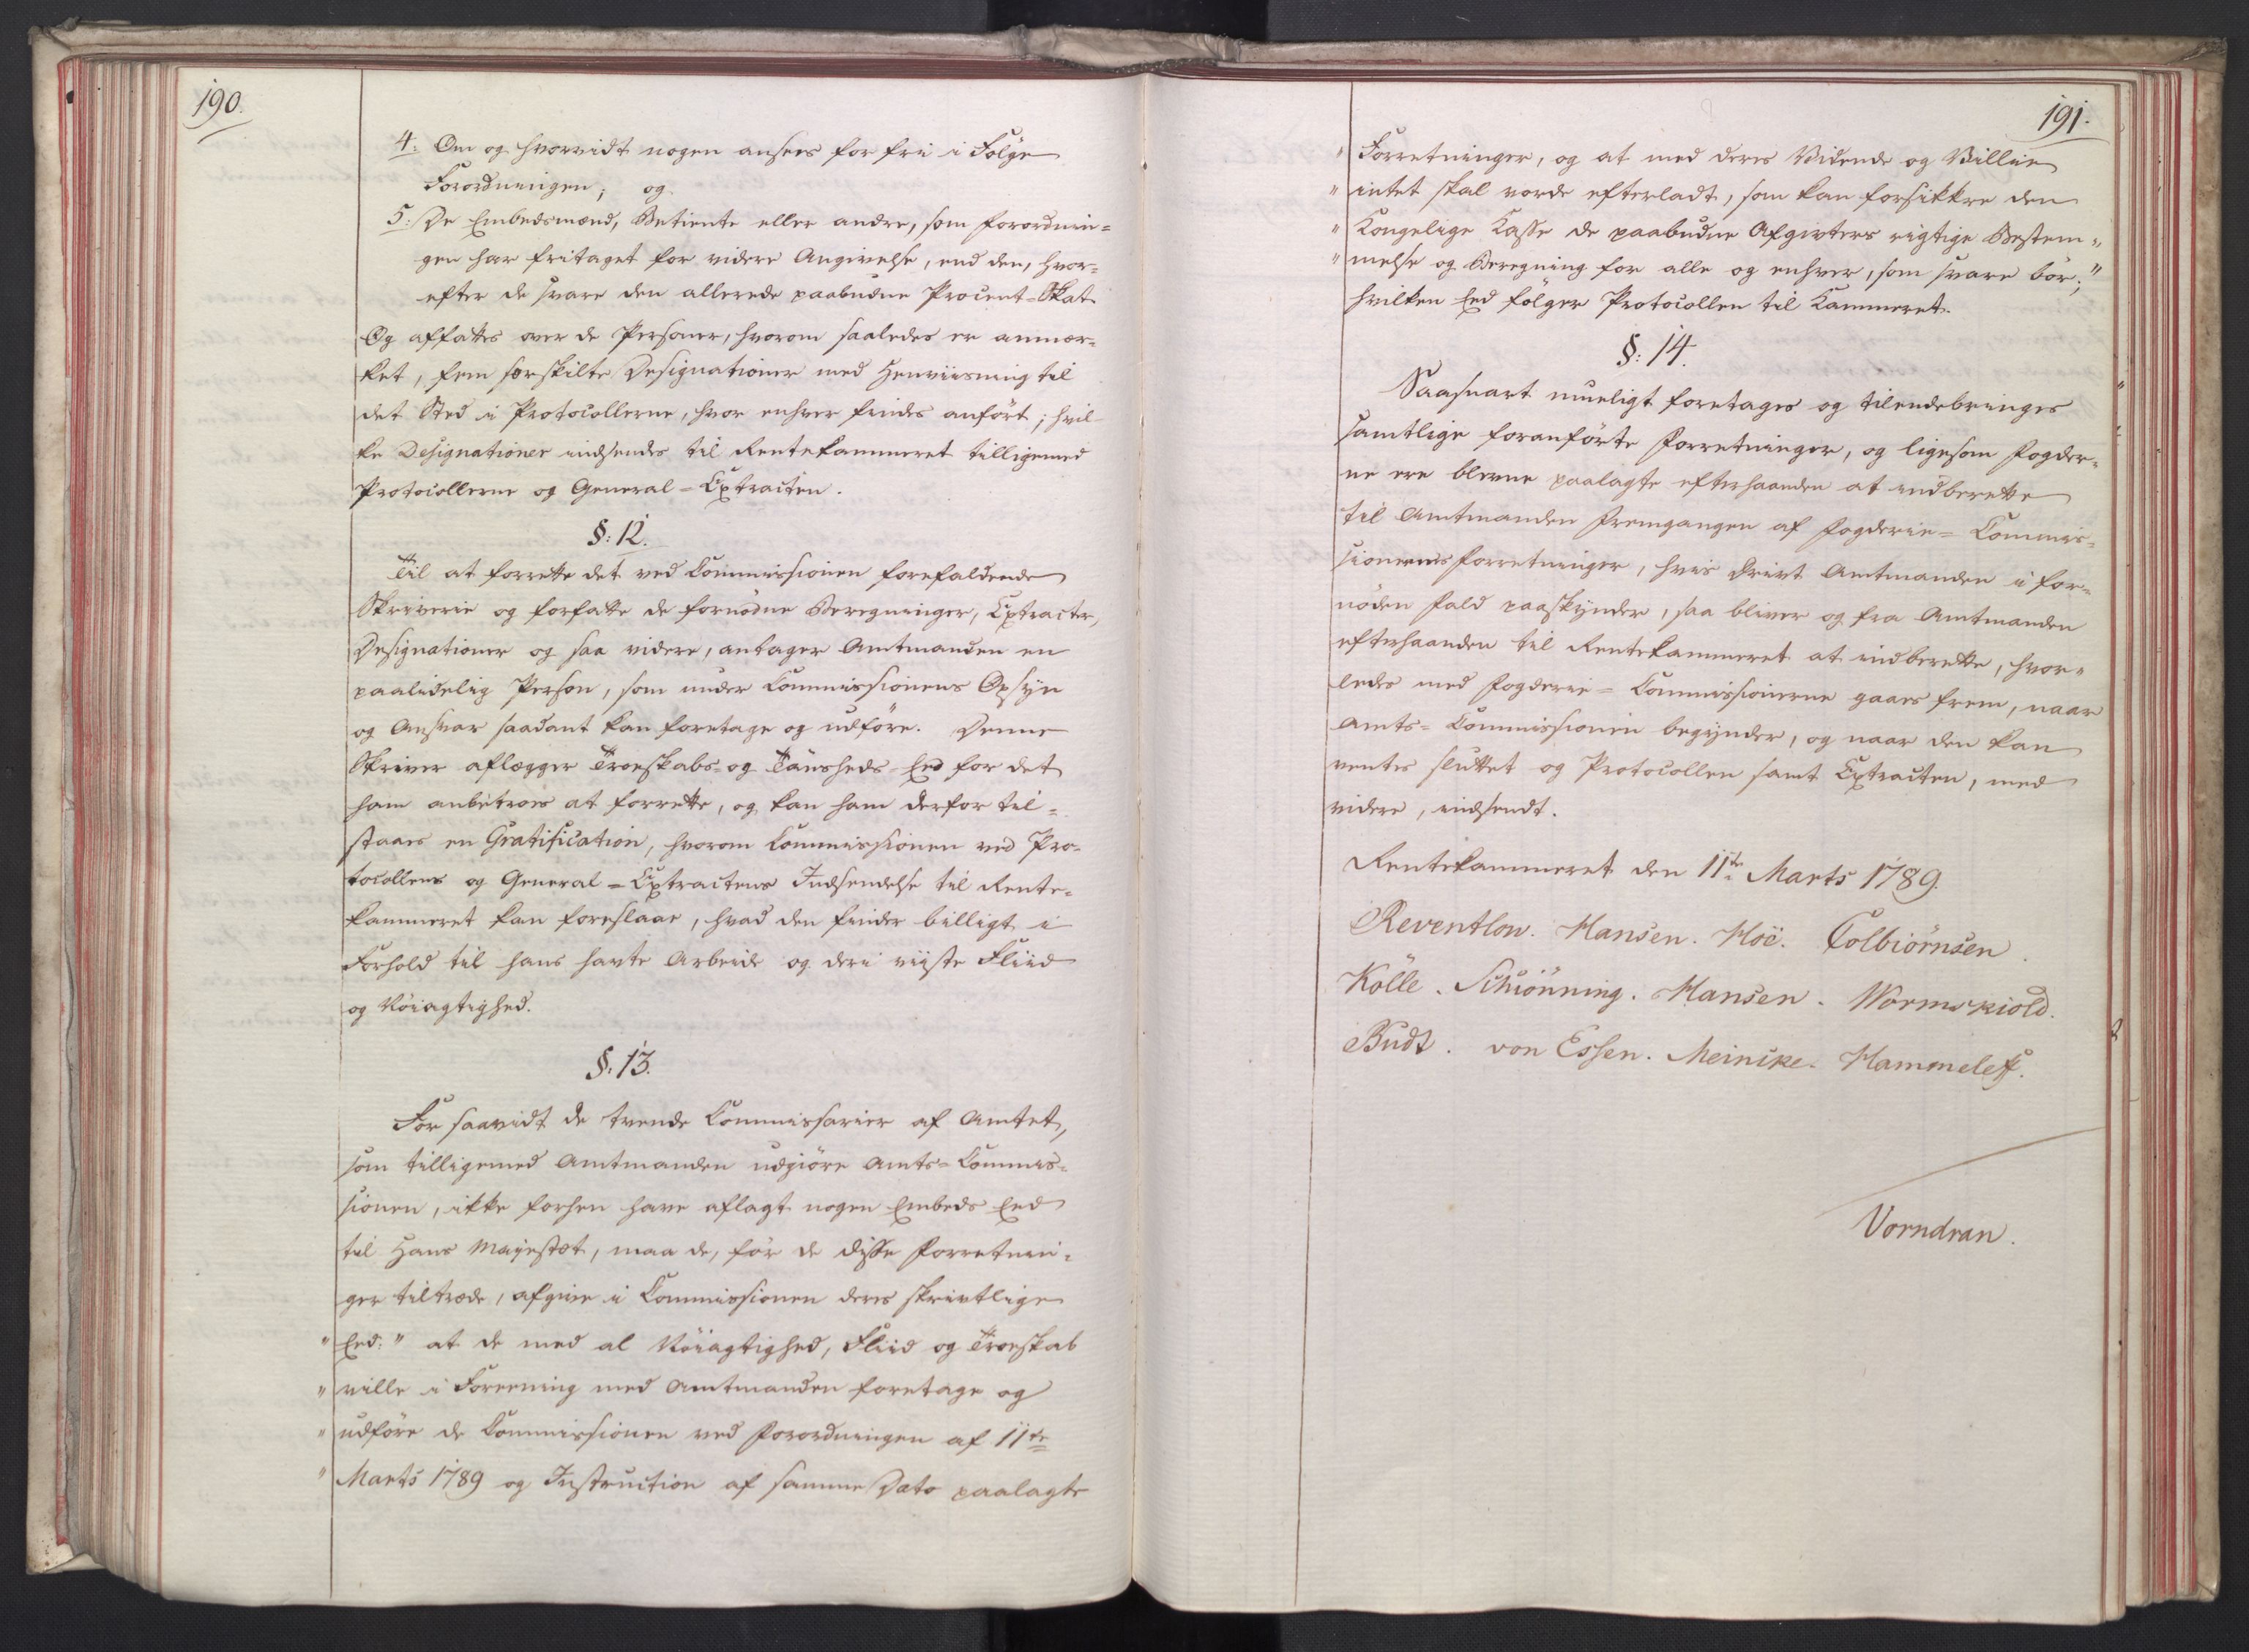 190.
4. Om og hvorvidt nogen ansees for fri i Følge
Forordningen; og
5: De Embedsmænd, Betiente eller andre, som Forordnin=
gen har fritaget for videre Angivelse, end den, hvor=
efter de svare den allerede paabudne Procent-Skat
Og affattes over de Personer, hvorom saaledes er anmær=
ket, fem særskilte Designationer med Henviisning til
det Sted i Protocollerne, hvor enhver findes anført; hvil-
ke Designationer indsendes til Rentekammeret tilligemed
Protocollerne og General=Extracten.
§: 12.
Til at forrette det ved Commissionen forefaldende
Skriverie og forfatte de fornødne Beregninger, Extracter,
Designationer og saa videre, antager Amtmanden en
paalidelig Person, som under Commissionens Opsyn
og Ansvar saadant kan foretage og udføre. Denne
Skriver aflægger Troeskabs- og Tausheds-Eed for det
ham anbetroes at forrette, og kan ham derfor til=
staaes en Gratification, hvorom Commissionen ved Pro-
tocollens og General=Extractens Indsendelse til Rente=
kammeret kan foreslaae, hvad den finder billigt i
Forhold til hans havte Arbeide og deri viiste Fliid
og Nøiagtighed.
§: 13.
For saavidt de trende Commissarier af Amtet,
som tilligemed Amtmanden udgiøre Amts=Commis=
sionen, ikke forhen have aflagt nogen Embeds Eed
til Hans Majestæt, maa de, før de disse Forretnin=
ger tiltræde, afgive i Commissionen deres skrivtlige
" Eed: " at de med al Nøiagtighed, Fliid og Troeskab
" ville i Foreening med Amtmanden foretage og
" udføre de Commissionen ved Forordningen af 11te
" Marts 1789 og Instruction af samme Dato paalagte
191.
" Forretninger, og at med deres Vidende og Villie
" intet skal vorde efterladt, som kan forsikkre den
" Kongelige Casse de paabudne Afgivters rigtige Bestem=
" melse og Beregning for alle og enhver, som svare bør;"
hvilken Eed følger Protocollen til Kammeret.
§: 14.
Saasnart mueligt foretages og tilendebringes
samtlige foranførte Forretninger, og ligesom Fogder=
ne ere blevne paalagte efterhaanden at indberette
til Amtmanden Fremgangen af Fogderie=Commis=
sionernes Forretninger, hvis Drivt Amtmanden i for=
nøden Fald paaskynder, saa bliver og fra Amtmanden
efterhaanden til Rentekammeret at indberette, hvor=
ledes med Fogderie=Commissionerne gaaer frem, naar
Amts=Commissionen begynder, og naar den kan
ventes sluttet og Protocollen samt Extracten, med
videre, indsendt.
Rentekammeret den 11te Marts 1789.
Reventlow. Hansen. Höe. Colbiörnsen.
Kölle. Schiönning. Hansen. Wormskiold.
Budt. von Essen. Meincke. Hammeleff.
Vorndran.